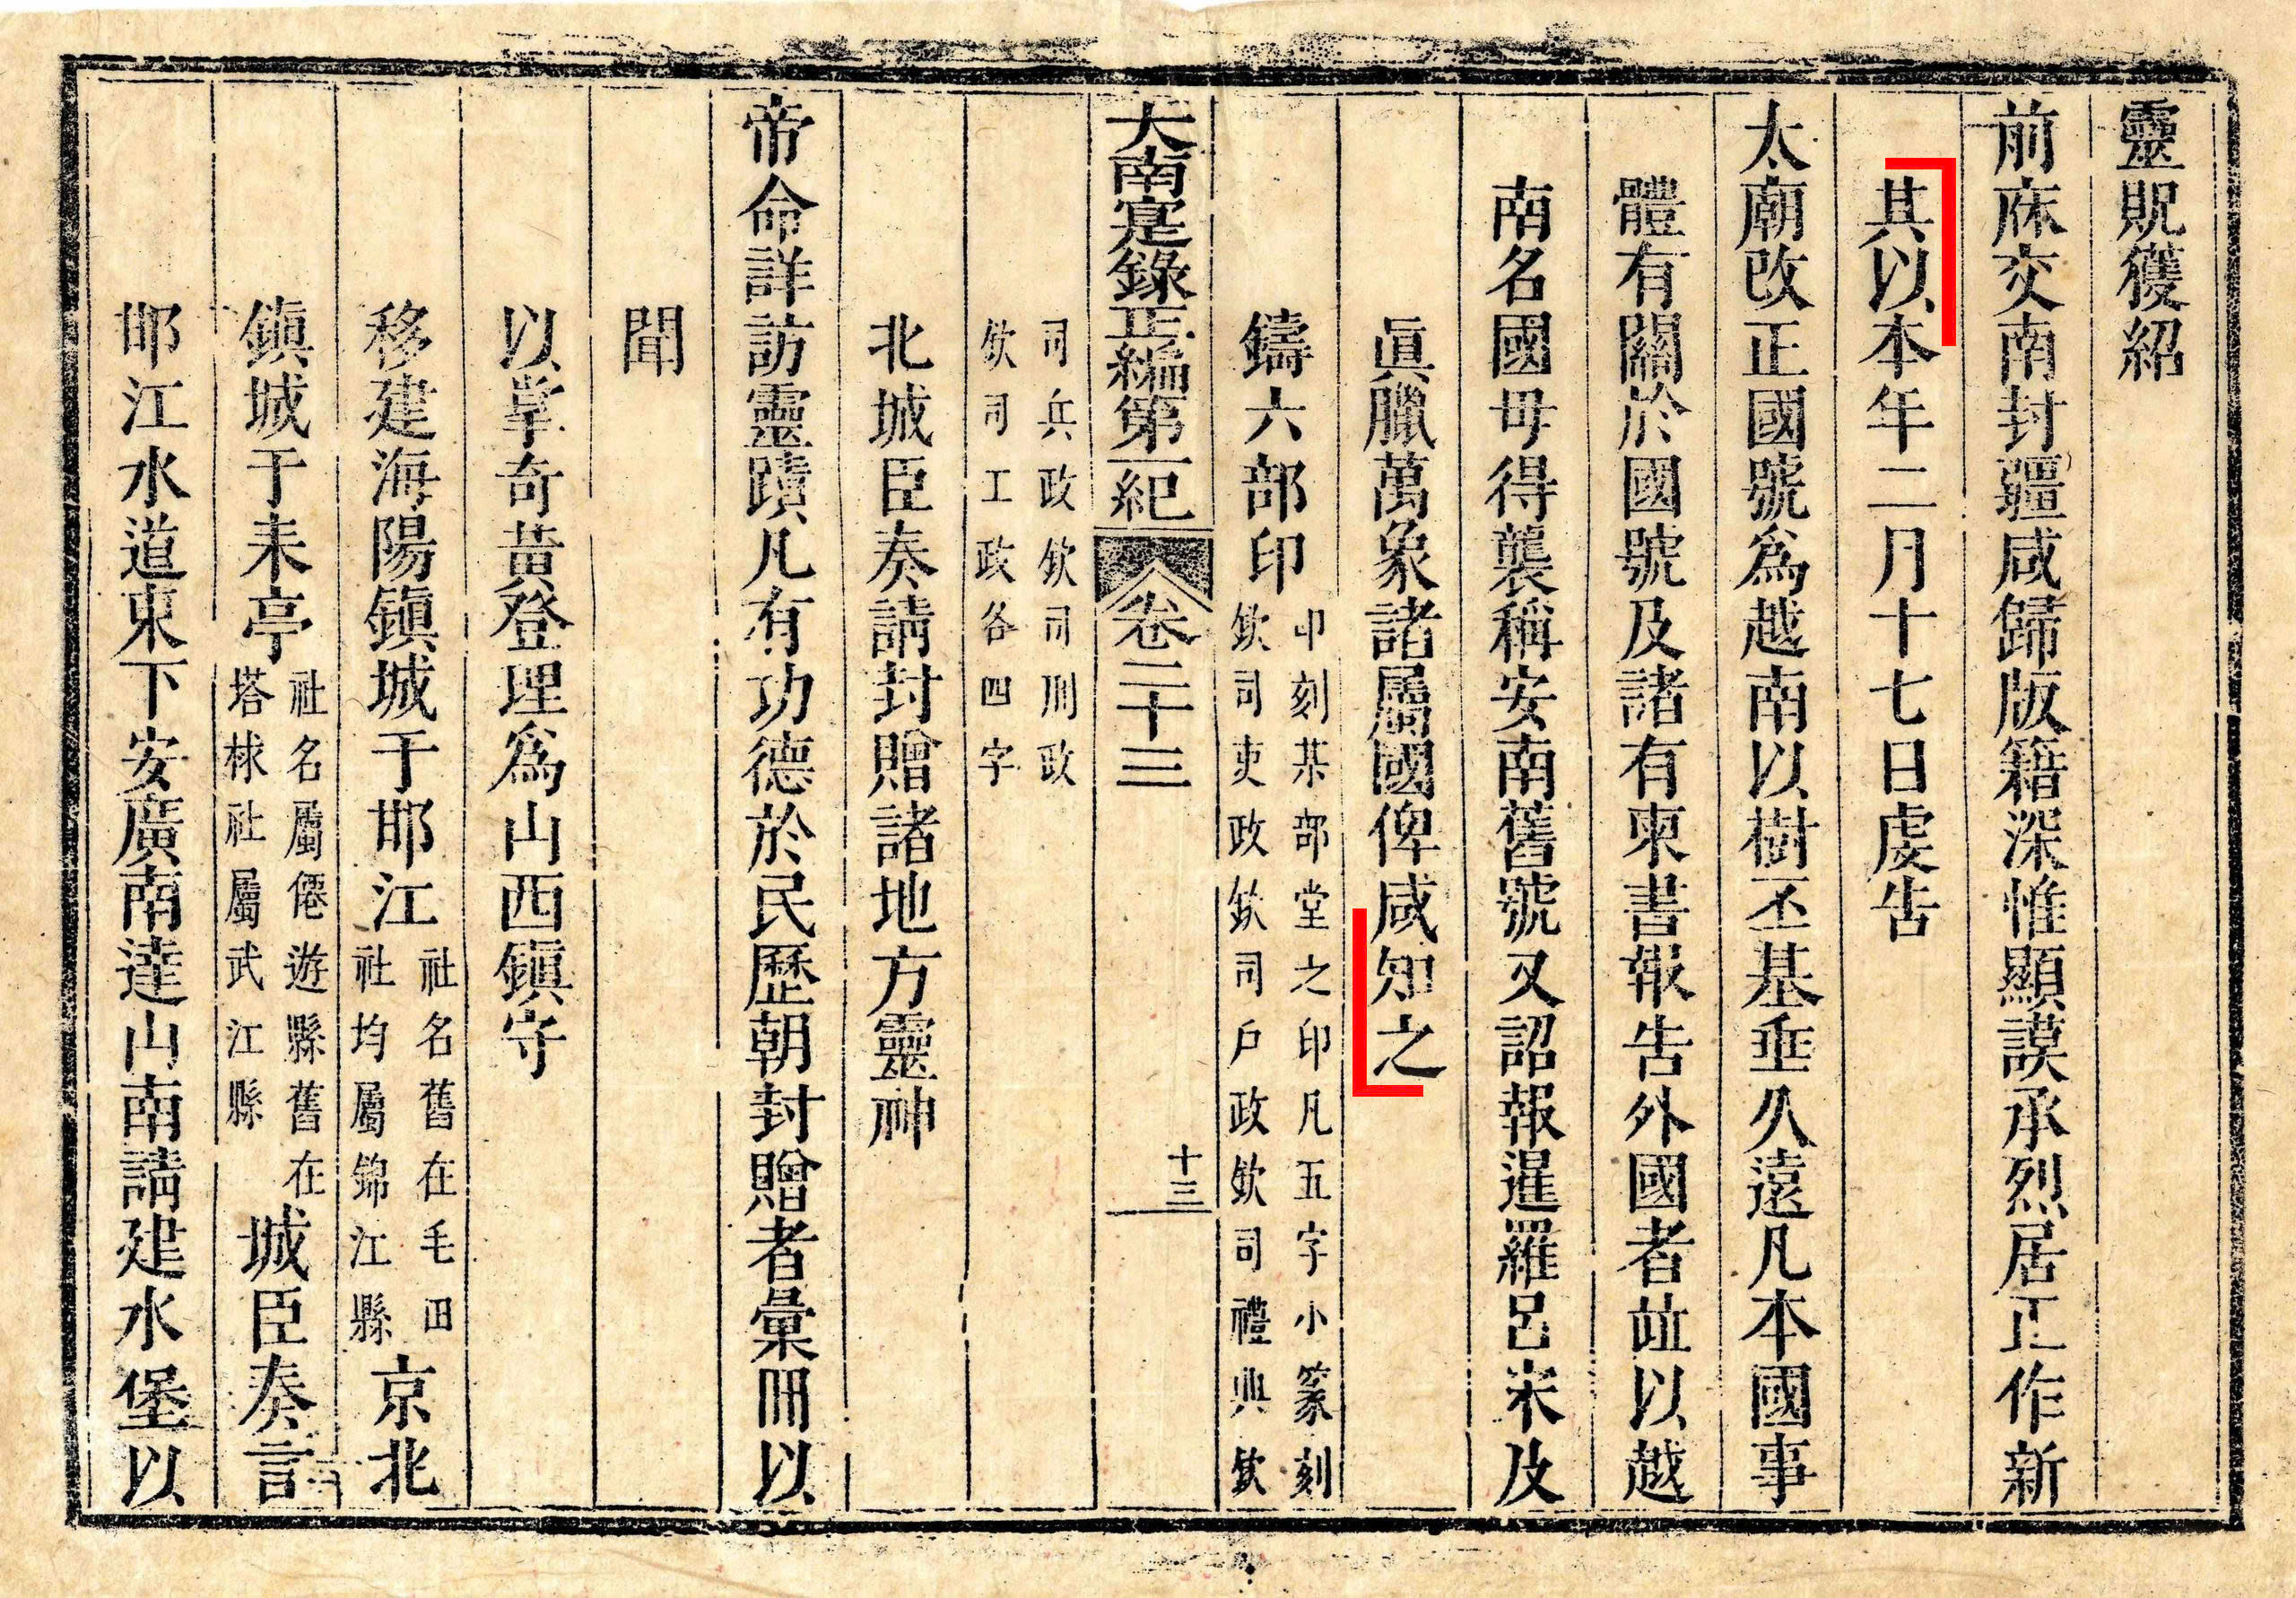 靈貺獲紹
前庥交南封疆咸歸版籍深惟顯謨承烈居正作新
其以本年二月十七日虔告
太廟改正國號爲越南以樹丕基垂久遠凡本國事
體有關於國號及諸有柬書報告外國者竝以越
南名國毋得襲稱安南舊號又詔報暹羅呂宋及
眞臘萬象諸屬國俾咸知之
鑄六部印
印刻某部堂之印凡五字小篆刻
欽司吏政欽司戶政欽司禮典欽
司兵政欽司刑政
欽司工政各四字
大南寔錄正編第一紀 卷二十三 十三
北城臣奏請封贈諸地方靈神
帝命詳訪靈蹟凡有功德於民歷朝封贈者彙冊以
聞
以掌奇黃登理爲山西鎮守
移建海陽鎮城于邯江
社名舊在毛田
社均屬錦江縣
京北
鎮城于耒亭
社名屬僊遊縣舊在
塔梂社屬武江縣
城臣奏言
邯江水道東下安廣南達山南請建水堡以